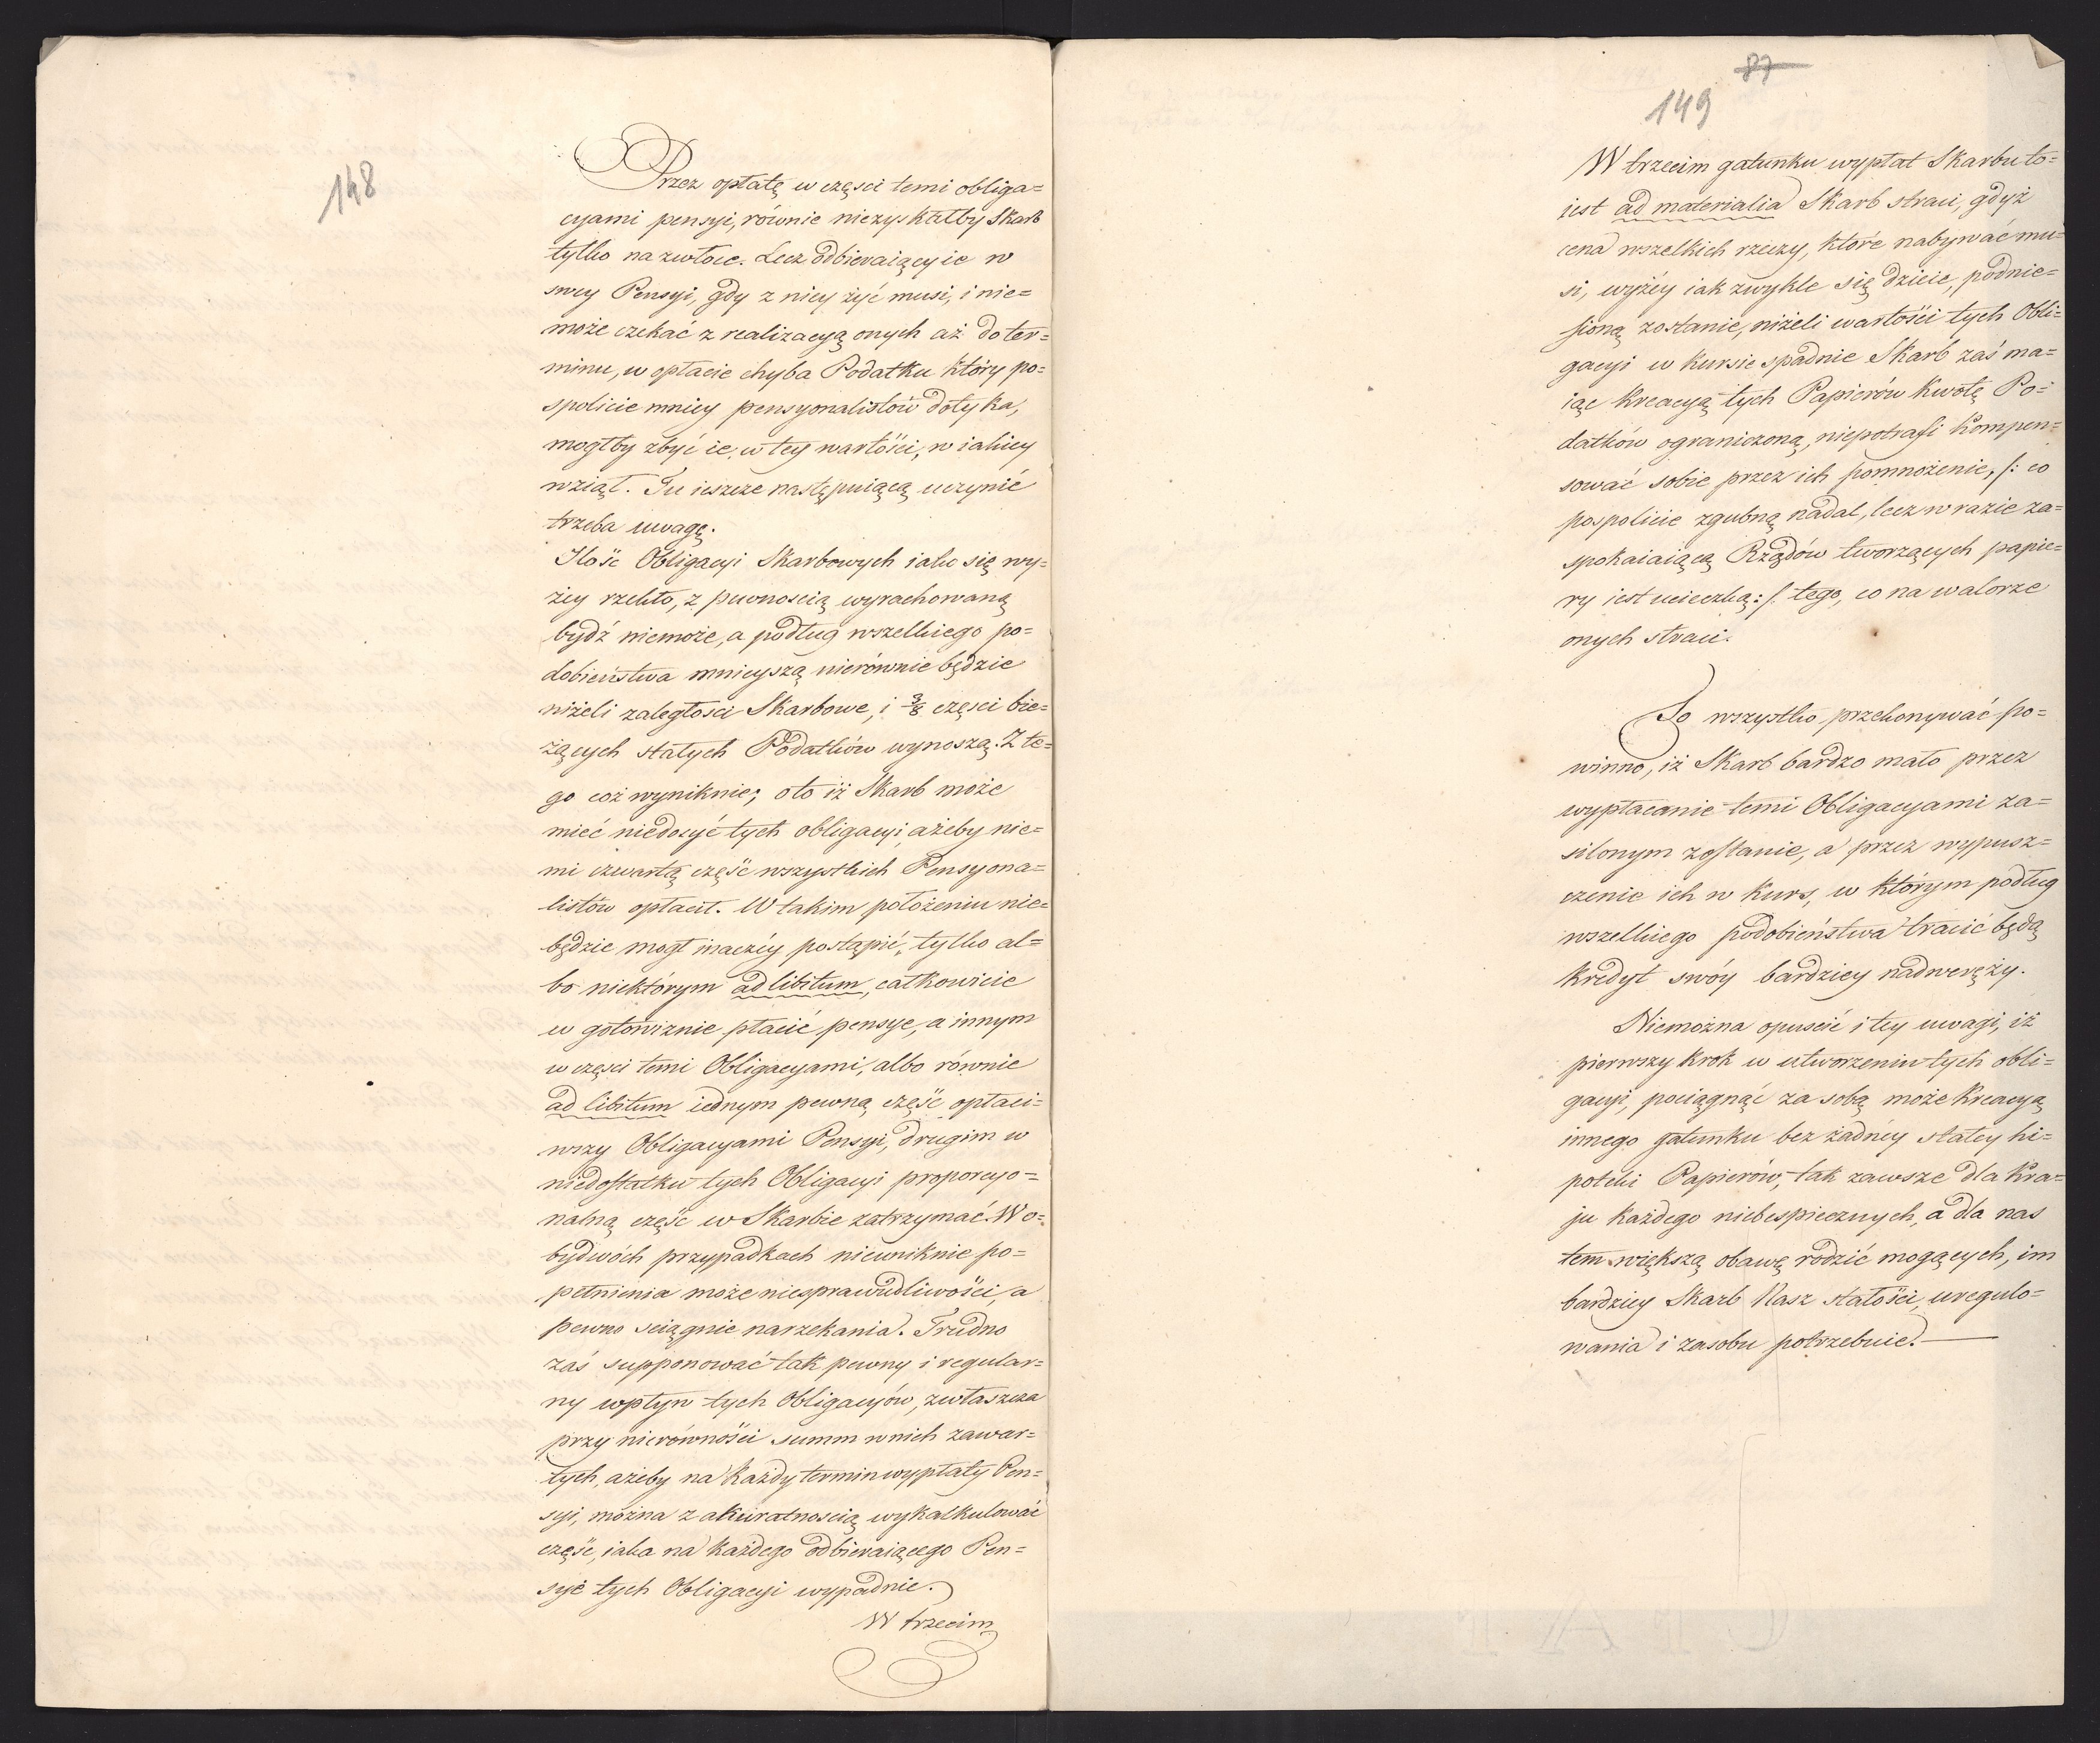 148
Przez opłatę w częsci temi obliga=
cyami pensyi, równie niezyskałby Skarb
tylko na zwłoce. Lecz odbieraiący ie w
swey Pensyi, gdy z niey żyć musi, i nie=
może czekać z realizacyą onych aż do ter=
minu, w opłacie chyba Podatku który po=
spolicie mniey pensyonalistów dotyka,
mogłby zbyć ie, w tey wartości, w iakiey
wziął. Tu ieszcze następuiącą uczynić
trzeba uwagę.
Ilość Obligacyi Skarbowych iako się wy=
żey rzekło, z pewnoscią wyrachowaną
bydź niemoże, a podług wszelkiego po=
dobieństwa mnieyszą nierównie będzie
niżeli zaległosci Skarbowe, i 3/8 częsci bie=
żących stałych Podatków wynoszą. Z te=
go coż wyniknie; oto iż Skarb może
mieć niedosyć tych obligacyi, ażeby nie=
mi czwartą część wszystkich Pensyona=
listów opłacił. W takim położeniu nie=
będzie mogł inaczéy postąpić, tylko al=
bo niektórym ad libitum, całkowicie
w gotowiznie płacić pensye, a innym
w częsci temi Obligacyami, albo równie
ad libitum iednym pewną część opłaci=
wszy Obligacyami Pensyi, drugim w
niedostatku tych Obligacyi proporcyo=
nalną część w Skarbie zatrzymać. W o=
bydwóch przypadkach nieuniknie po=
pełnienia może niesprawiedliwości, a
pewno sciągnie narzekania. Trudno
zaś supponować tak pewny i regular=
ny wpływ tych Obligacyów, zwłaszcza
przy nierówności summ w nich zawar=
tych, ażeby na każdy termin wypłaty Pen=
syi, można z akuratnoscią wykalkulować
część, iaka na każdego odbieraiącego Pen=
syę tych Obligacyi wypadnie.
W trzecim
87
149
W trzecim gatunku wypłat Skarbu to=
iest ad materialia Skarb straci, gdyż
cena wszelkich rzeczy, które nabywać mu=
si, wyżéy iak zwykle się dzieie, podnie=
sioną zostanie, niżeli wartości tych Obli=
gacyi w kursie spadnie Skarb zaś ma=
iąc kreacyą tych Papierów kwotę Po=
datków ograniczoną, niepotrafi kompen=
sować sobie przez ich pomnożenie, /: co
pospolicie zgubną nadal, lecz w razie za=
spokaiaiącą Rządów tworzących papie=
ry iest ucieczką :/ tego, co na walorze
onych straci.
To wszystko przekonywać po=
winno, iż Skarb bardzo mało przez
wypłacanie temi Obligacyami za=
silonym zostanie, a przez wypusz=
czenie ich w kurs, w którym podług
wszelkiego podobieństwa tracić będą
kredyt swóy bardziey nadweręży.
Niemożna opuscić i tey uwagi, iż
pierwszy krok w utworzeniu tych obli=
gacyi, pociągnąć za sobą może kreacyą
innego gatunku bez żadnéy stałey hi=
poteki Papierów, tak zawsze dla kra=
ju każdego niebespiecznych, a dla nas
tem większą obawę rodzić mogących, im
bardziey Skarb Nasz stałości, uregulo=
wania i zasobu potrzebuie.